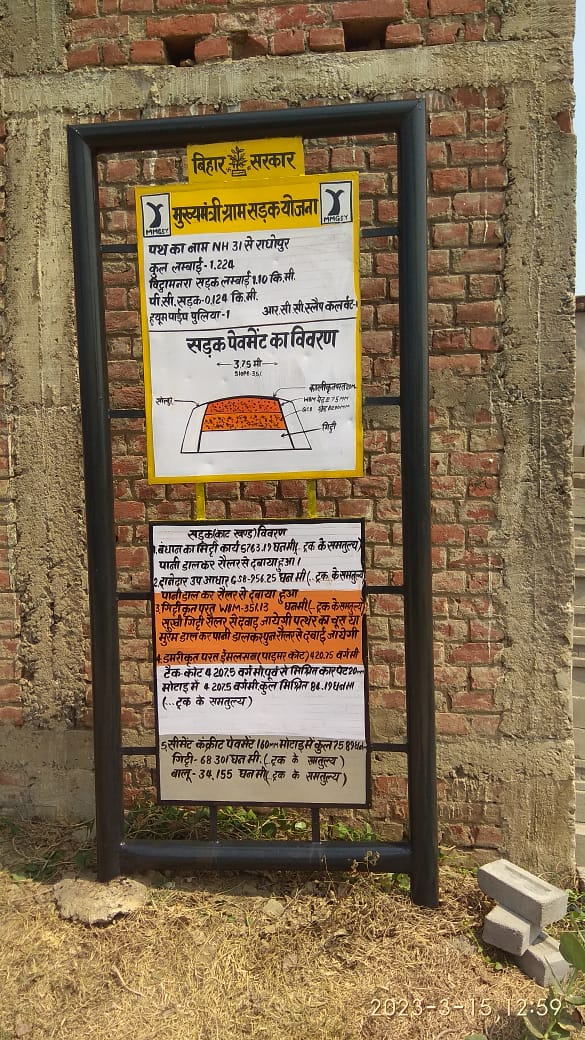 बिहार सरकार
मुख्यमंत्री ग्राम सड़क योजना
MMGSY
MMGSY
पथ का नाम NH 31 से राघोपुर
कुल लम्बाई - 1.224
बिटुामनरा सड़क लम्बाई 1.10 कि.मी.
पी.सी.सड़क-0.124 कि.मी.
ह्यूम पाईप पुलिया-1 आर.सी.सी.स्लैप कलवर्ट-1
सड़क पेवमेंट का विवरण
3.75 मी
SLOPE-3.5%
सोल्डर
WBM ग्रेड III 75 MM
GSB
गिट्टी
सड़क (काट खण्ड) विवरण
1. बंधान का मिट्टी कार्य 5763.19 घन मी (.. ट्रक के समतुल्य)
पानी डालकर रौलर से दबाया हुआ।
2. दानेदार उप आधार GSB-956.25 घन मी (.. ट्रक के समतुल्य)
पानी डाल कर रौलर से दबाया हुआ
3. गिट्टीकृत परत WBM-351.13 घनमी (.. ट्रक के समतुल्य)
सूखी गिट्टी रौलर से दबाई जायेगी पत्थर का चूरा या
मुरम डाल कर पानी डालकर पुन रौलर से दबाई जायेगी
4. डमरीकृत परत ईमलसन (प्राइमर कोट) 4207.5 वर्ग मी
टैक कोट 4207.5 वर्ग मी, पूर्व से मिश्रित कारपेट 20mm
मोटाई में 4207.5 वर्गमी, कुल मिश्रित 84.19 घनमी
(... ट्रक के समतुल्य)
5. सीमेंट कंक्रीट पेवमेंट 160mm मोटाई में कुल 75.89 घन
गिट्टी - 68.301 घन मी. (.. ट्रक के समतुल्य)
बालू - 34.155 घन मी (.. ट्रक के समतुल्य)
2023-3-15, 12:59